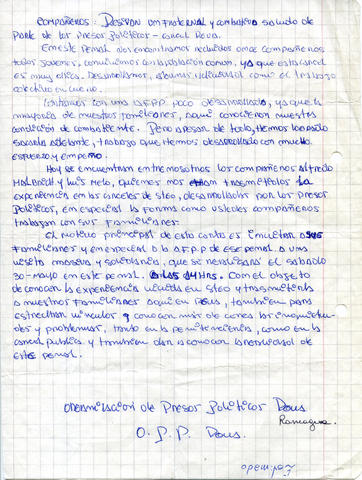 COMPAÑEROS: RECIBAN UN FRATERNAL y combativo saludo de
parte de los Presos Políticos - Carcel Rengo.
En este Penal nos encontramos recluidos once compañeros
todos jovenes, convivimos con la población común, ya que esta carcel
es muy chica. Desarrollamos, algunas individual como el trabajo
colectivo en cuero.
Contamos con una A.F.P.P poco desarrollada, ya que la
mayoría de nuestros familiares, aquí conocieron nuestra
condición de combatiente. Pero apesar de todo, hemos logrado
sacarla adelante, trabajo que hemos desarrollado con mucho
esfuerzo y empeño.
Hoy se encuentran entre nosotros los compañeros Alfredo
y Luis Melo, quienes nos han trasmitido la
experiencia en las carceles de Stgo, desarrollados por los Presos
Políticos, en especial la forma como ustedes compañeros
trabajan con sus familiares.
El motivo principal de esta carta es invitar a sus
familiares y en especial a la A.F.P.P de ese penal. A una
visita masiva y solidaria, que se realizara el sabado
30-MAYO en este penal. A las 14 Hrs. Con el objeto
de conocer la experiencia vivida en Stgo y trasmitirla
a nuestros familiares aquí en , tambien para
estrechar vinculos y conocer más de cerca las inquietu-
des y problemas, tanto en la penitenciaría, como en la
carcel pública y tambien dar a conocer la realidad de
este penal.
Organización de Presos Políticos
Rancagua.
O. P. P.